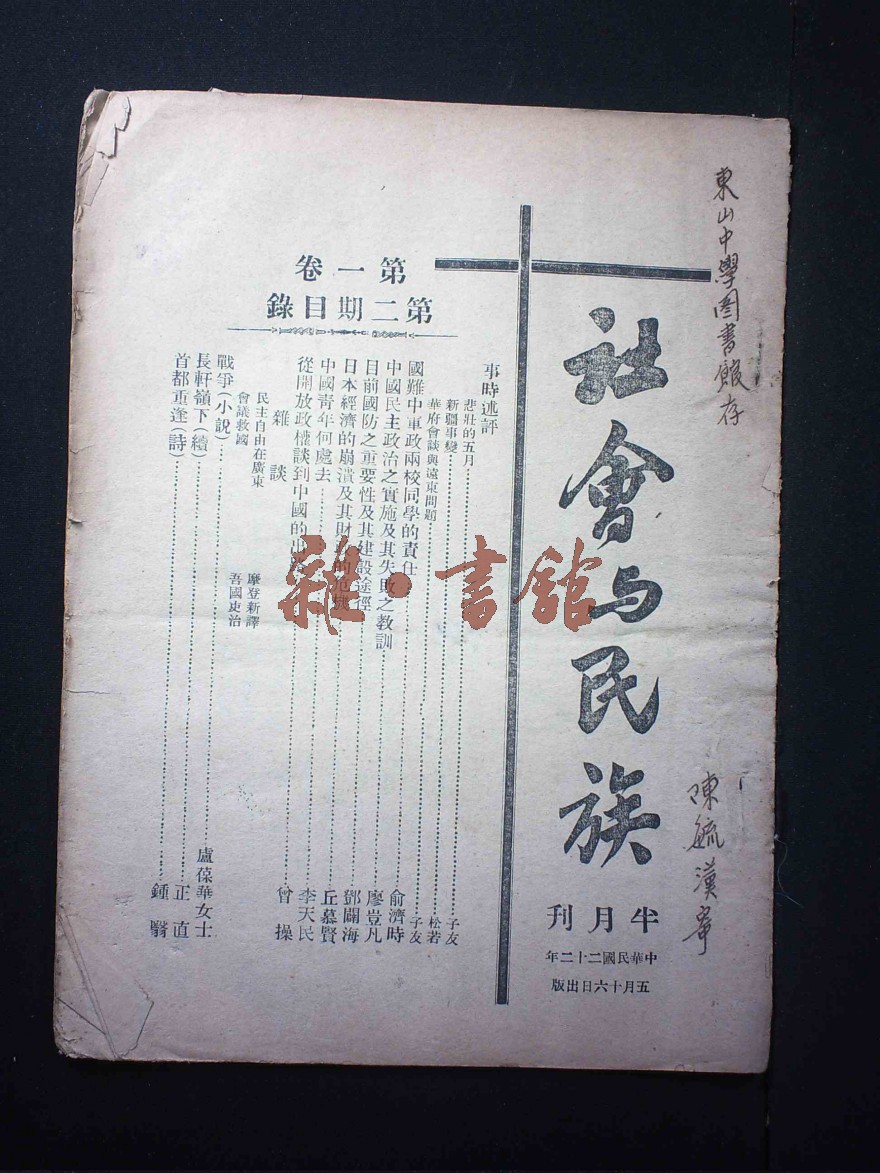 東山中學圖書館存
陳毓漢寄
社會与民族
半月刊
中華民國二十二年
五月十六日出版
第一卷
第二期目錄
事時述評
悲壯的五月 子友
新疆事變 松若
華府會談與遠東問題 子友
國難中軍政兩校同學的責任 俞濟時
中國民主政治之實施及其失敗之教訓 廖豈凡
目前國防之重要性及其建設途徑 鄧闢海
日本經濟的崩潰及其財 丘慕賢
中國青年何處去 李天民
從開放政權談到中國的出 曾操
雜談
民主自由在廣東 摩登新譯
會議救國 吾國吏治
戰爭(小說) 盧葆華女士
長軒嶺下(續) 正直
首都重逢(詩) 鍾翳
雜·書館